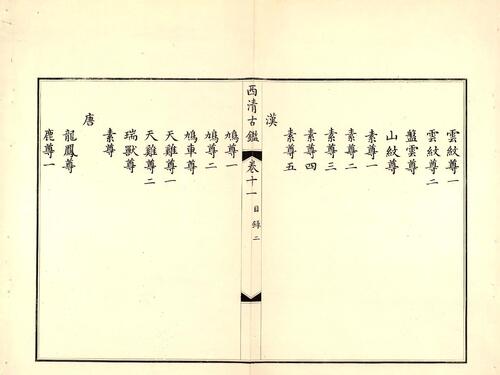 雲紋尊一
雲紋尊二
盤雲尊
山紋尊
素尊一
素尊二
素尊三
素尊四
素尊五
漢
西清古鑑 卷十一 目錄 二
鳩尊一
鳩尊二
鳩車尊
天雞尊一
天雞尊二
瑞獸尊
素尊
唐
龍鳳尊
鹿尊一